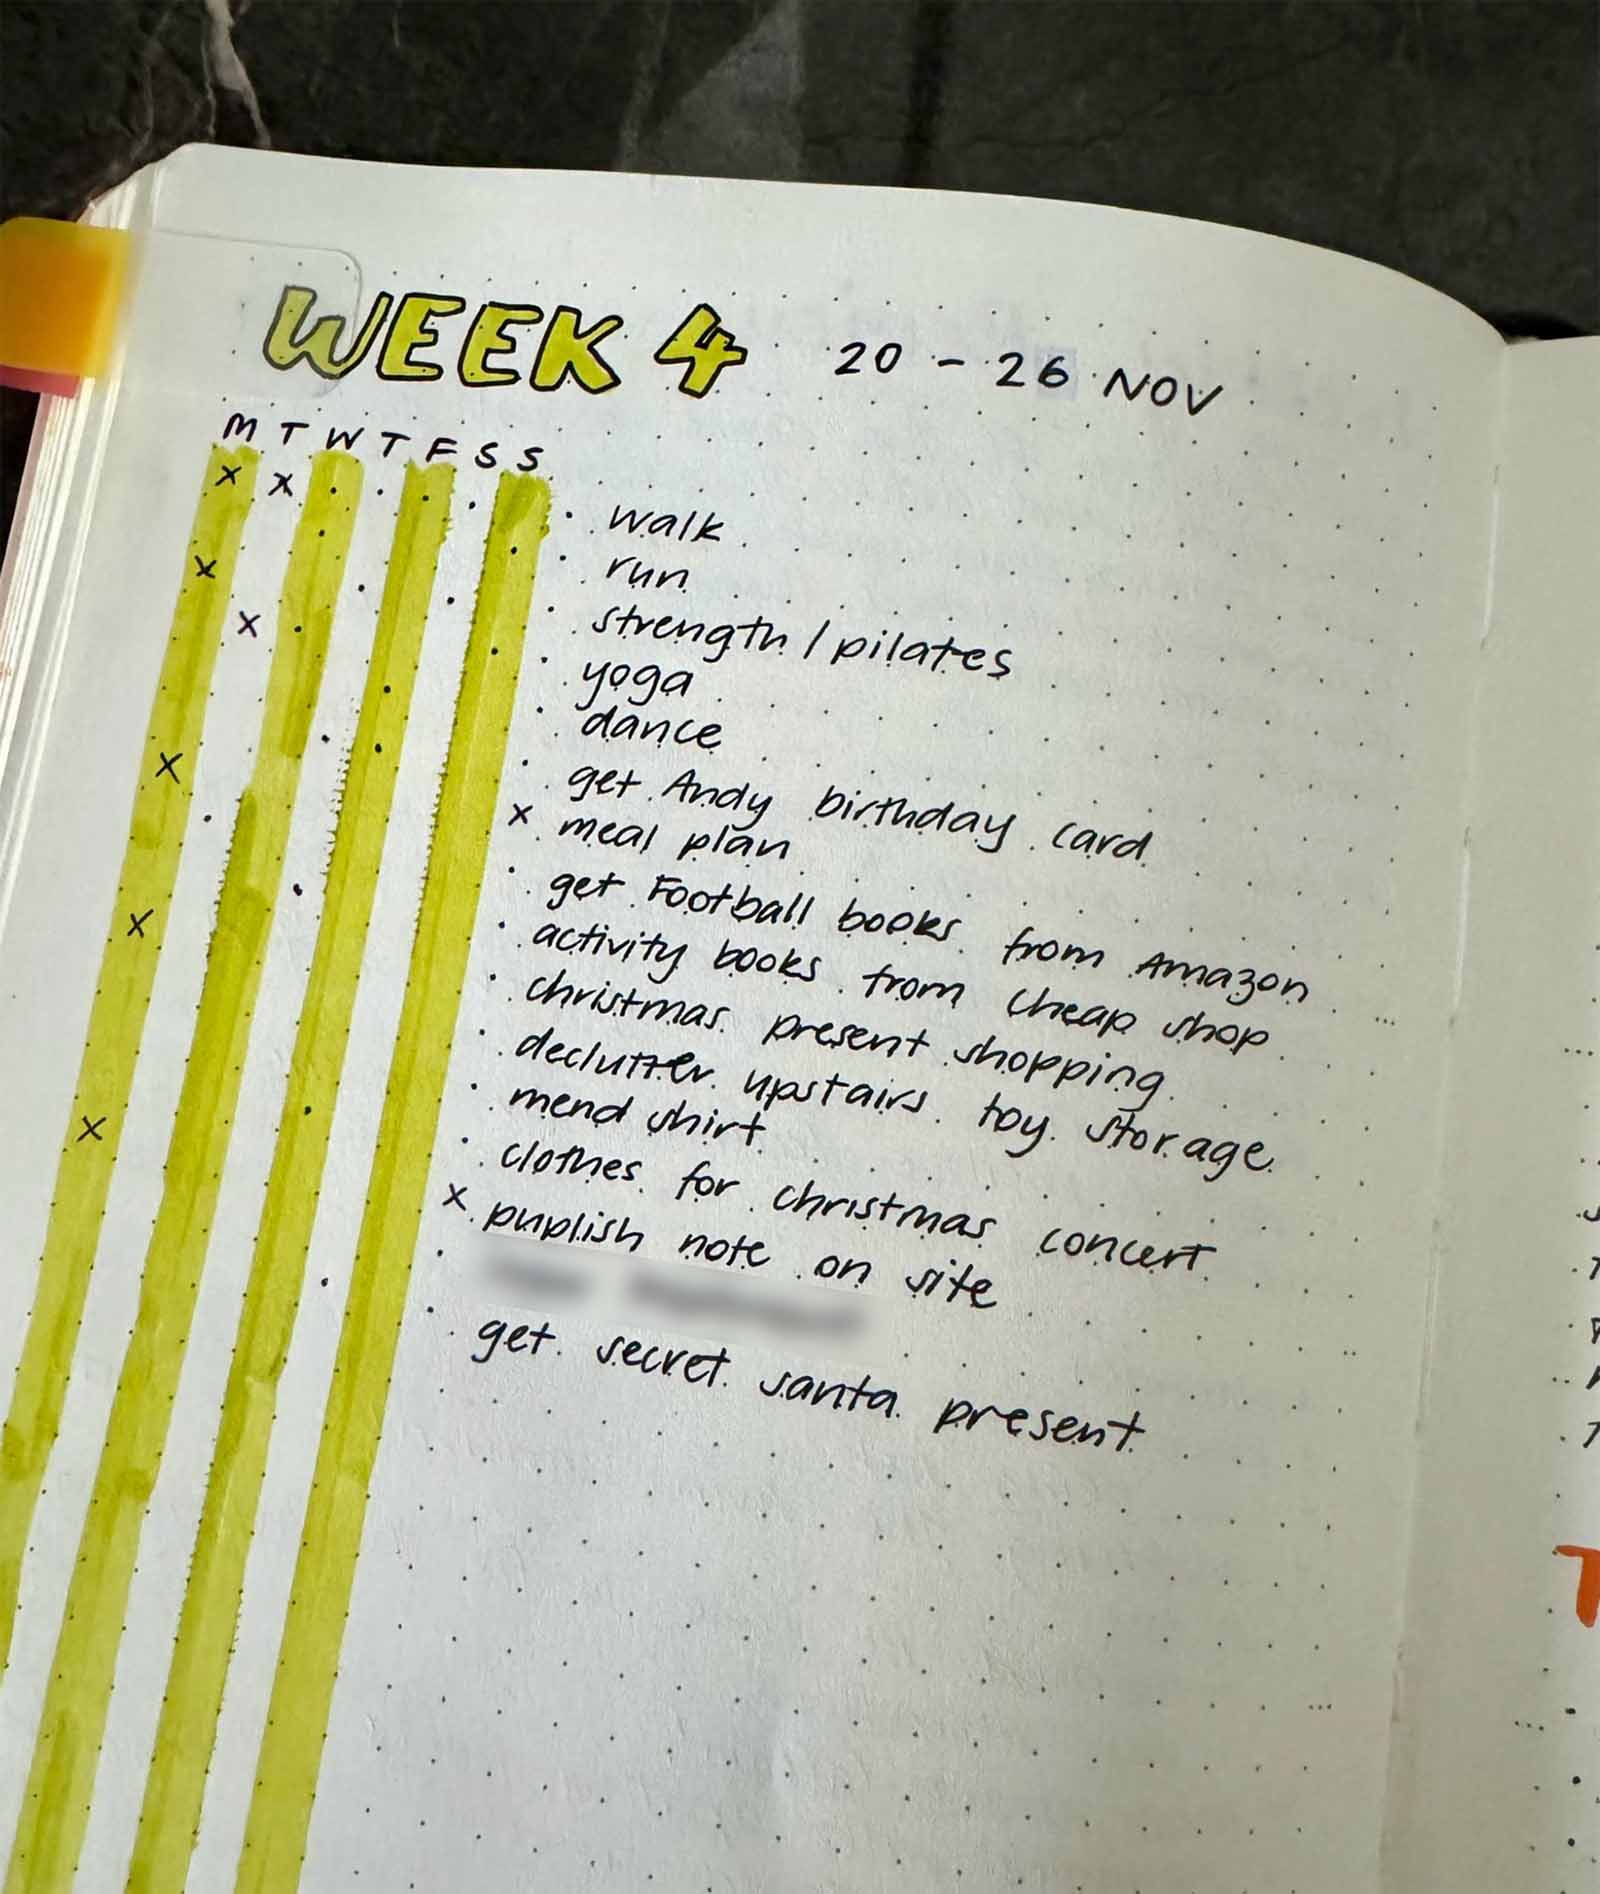 WEEK 4 20 - 26 NOV
M T W T F S S
x x walk
x run
x strength / pilates
yoga
dance
x get Andy birthday card
x meal plan
get Football books from Amazon
x activity books from cheap shop
christmas present shopping
declutter upstairs toy storage
mend shirt
x clothes for christmas concert
x publish note on site
get secret santa present